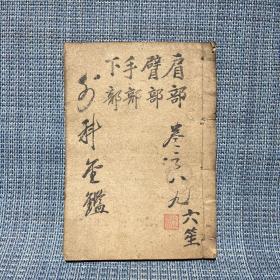 肩部
臂部
手部
下部
卷之八九
六笙
外科金鑑